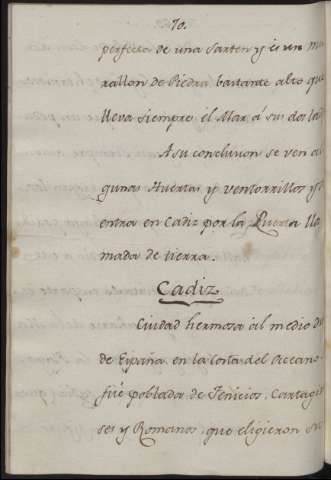 70.
perfecta de una Sarten y es un mu
rallon de Piedra bastante alto que
lleva siempre el Mar á sus dos la
A su conclusion se ven al
gunas Huertas y ventorrillos y se
entra en Cadiz por la Puerta lla
mada de tierra.
Cadiz
Ciudad hermosa al medio di
de España en la Costa del Occeano
fué poblada de Fenicios, Cartagin
ses y Romanos, que eligieron su